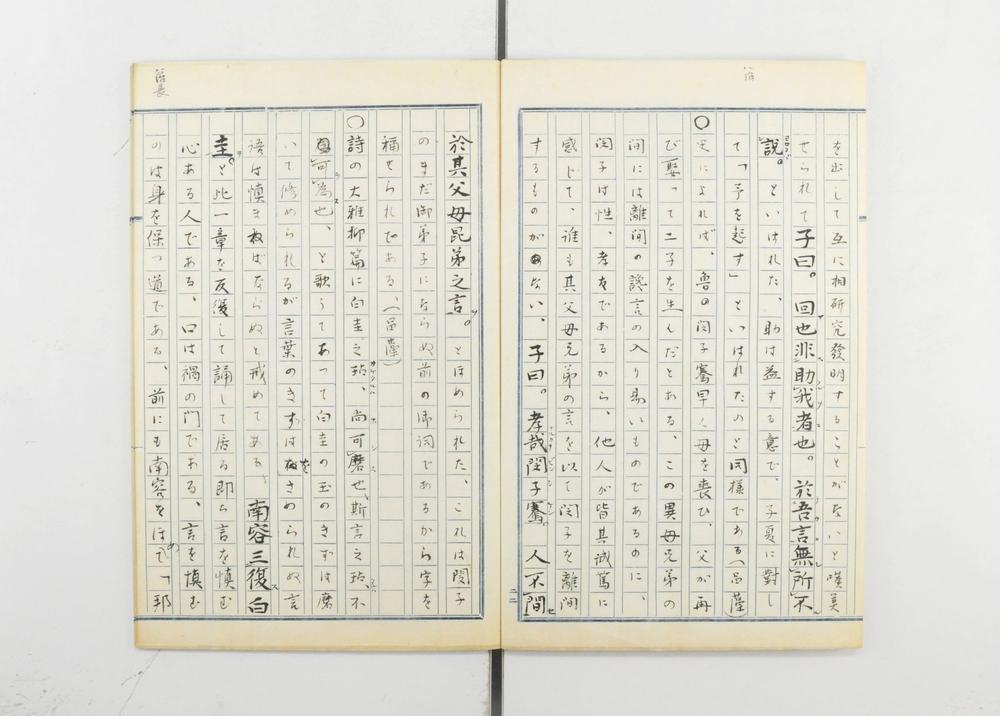 を出して互に相研究發明することがないと嘆美
せられて子曰。回也非助我者也。於吾言無所不
說。といはれた、助は益する意で、子夏に對し
て「予を起す」といはれたのと同様である(呂藻)
〇史によれば、魯の閔子騫早く母を喪ひ、父が再
び娶つて二子を生んだとある、この異母兄弟の
間には離間の讒言の入り易いものであるのに、
閔子は性、孝友であるから、他人が皆其誠篤に
感じて、誰も其父母兄弟の言を以て閔子を離間
するものがない、子曰。孝哉閔子騫。人不間
於其父母昆弟之言。とほめられた、これは閔子
のまだ御弟子にならぬ前の御詞であるから字を
稱せられてある、(呂藻)
〇詩の大雅抑篇に白圭之玷、尚可磨也、斯言之玷不
可為也、と歌うてあつて白圭の玉のきずは磨
いて修められるが言葉のきずはをさめられぬ言
語は慎まねばならぬと戒めてある、南容三復白
圭。と此一章を反復して誦して居る即ち言を慎む
心ある人である、口は禍の門である、言を慎む
のは身を保つ道である、前にも南容をほめて「邦